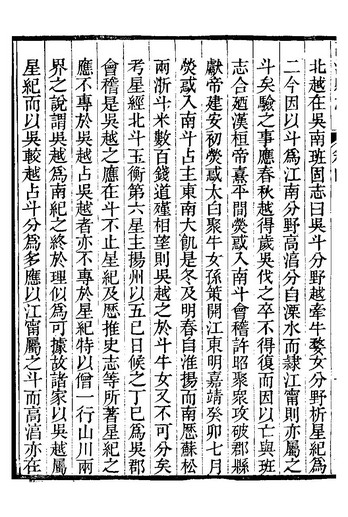 北越在吳南班固志曰吳斗分野越牽牛婺女分野析星紀爲
二今因以斗爲江南分野高湻分自溧水而隸江甯則亦屬之
斗矣驗之事應春秋越得歲吳伐之卒不得復而因以亡與班
志合廼漢桓帝熹平間熒惑入南斗會稽許昭聚衆攻破郡縣
獻帝建安初熒惑太白聚牛女孫策開江東明嘉靖癸卯七月
熒惑入南斗占主東南大飢是冬及明春自淮揚而南歷蘇松
兩浙斗米數百錢道殣相望則吳越之於斗牛女又不可分矣
考星經北斗玉衡第六星主揚州以五巳日候之丁巳爲吳郡
會稽是吳越之應在斗不止星紀及歷推史志等所著星紀之
應不專於吳越占吳越者亦不專於星紀特以僧一行山川兩
界之說謂吳越爲南紀之終於理似爲可據故諸家以吳越屬
星紀而以吳較越占斗分爲多應以江甯屬之斗而高湻亦在